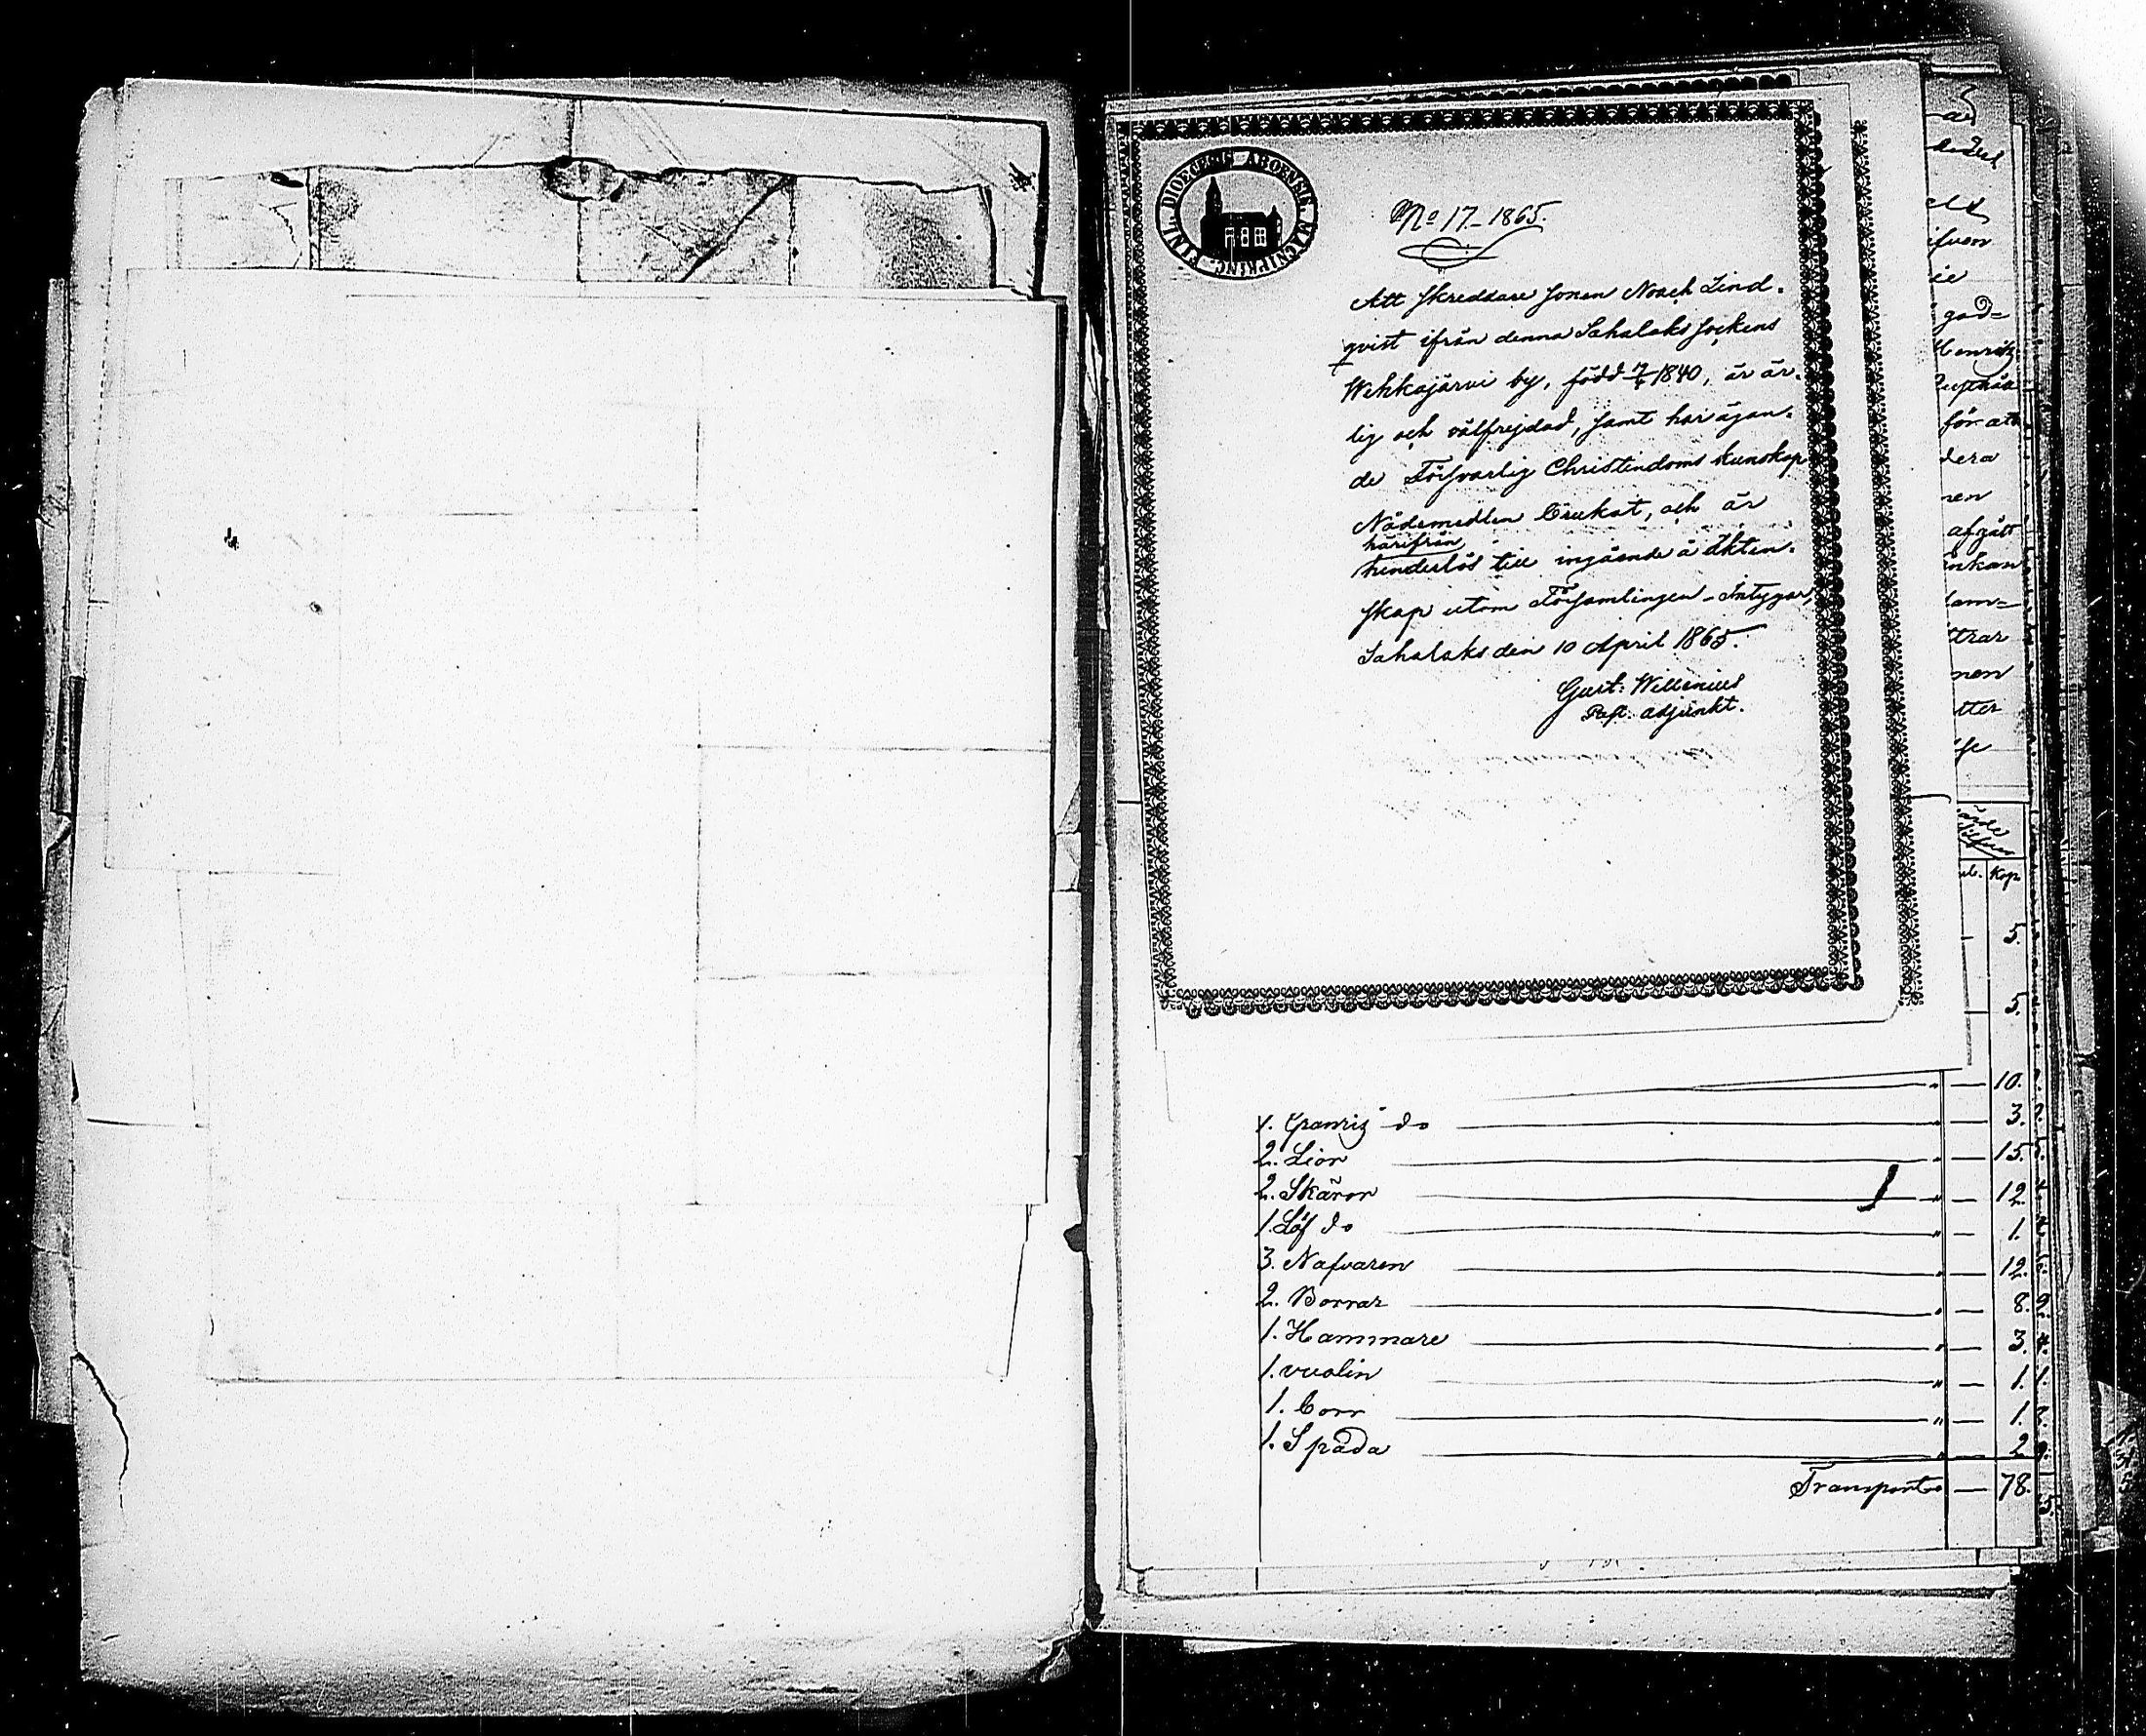 DIOECESIS ABOENSIS. MAGNI PRINC. FINL.
No 17. 1865.
Att Skreddare Sonen Noach Lind.
qvist ifrån denna Sahalaks Sockens
Wehkajärvi by, född 7/4 1840, är är.
lig och välfrejdad, samt har ägan.
de Församlig Christendoms kunskap
Nådemedlen brukat, och är
härifrån
hinderlös till ingående å äkten.
skap utom Församlingen - Intygar,
Sahalaks den 10 April 1865.
Gust: Willenius
Past. adjunkt.
ub. Kop
5.
5.
10.
1. Granris do " — 3.
2. Lior " — 15.
2. Skäror " — 12.
1. Löf do " — 1.
3. Nafvaren " — 12.
2. Borrar " — 8.
1. Hammare " — 3.
1. vuolin " — 1.
1. Borr " — 1.
1. Spada " — 2.
Transport " — 78.
ad
elt
ifven
ie
god=
Henrik
för att
dera
nen
afgått
nkan
dam=
ttrar
nen
tter